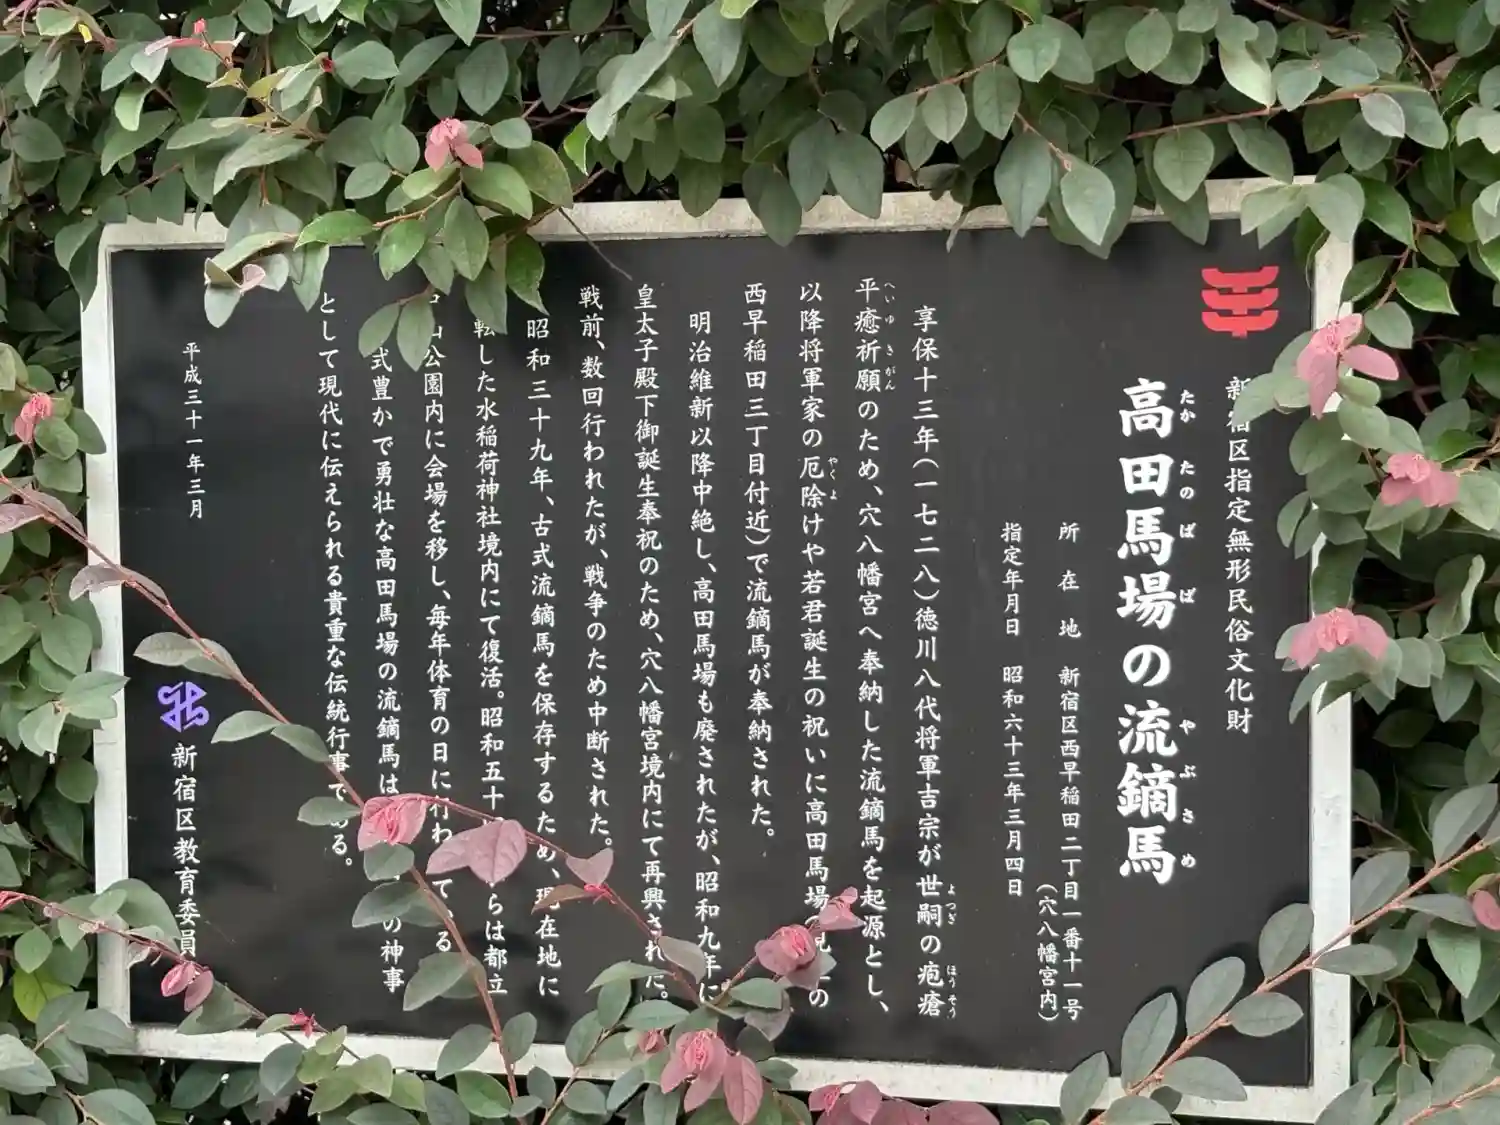 新宿区指定無形民俗文化財
高田馬場の流鏑馬
たか たの ば ば やぶさめ
所在地 新宿区西早稲田二丁目一番十一号
(穴八幡宮内)
指定年月日 昭和六十三年三月四日
享保十三年(一七二八)徳川八代将軍吉宗が世嗣の疱瘡
よつぎ ほうそう
平癒祈願のため、穴八幡宮へ奉納した流鏑馬を起源とし、
へいゆ きがん
以降将軍家の厄除けや若君誕生の祝いに高田馬場の
やくよ
西早稲田三丁目付近)で流鏑馬が奉納された。
明治維新以降中絶し、高田馬場も廃されたが、昭和九年に
皇太子殿下御誕生奉祝のため、穴八幡宮境内にて再興された。
戦前、数回行われたが、戦争のため中断された。
昭和三十九年、古式流鏑馬を保存するため、現在地に
転した水稲荷神社境内にて復活。昭和五十 らは都立
山公園内に会場を移し、毎年体育の日に行わ て る
式豊かで勇壮な高田馬場の流鏑馬は の神事
として現代に伝えられる貴重な伝統行事である。
平成三十一年三月
新宿区教育委員